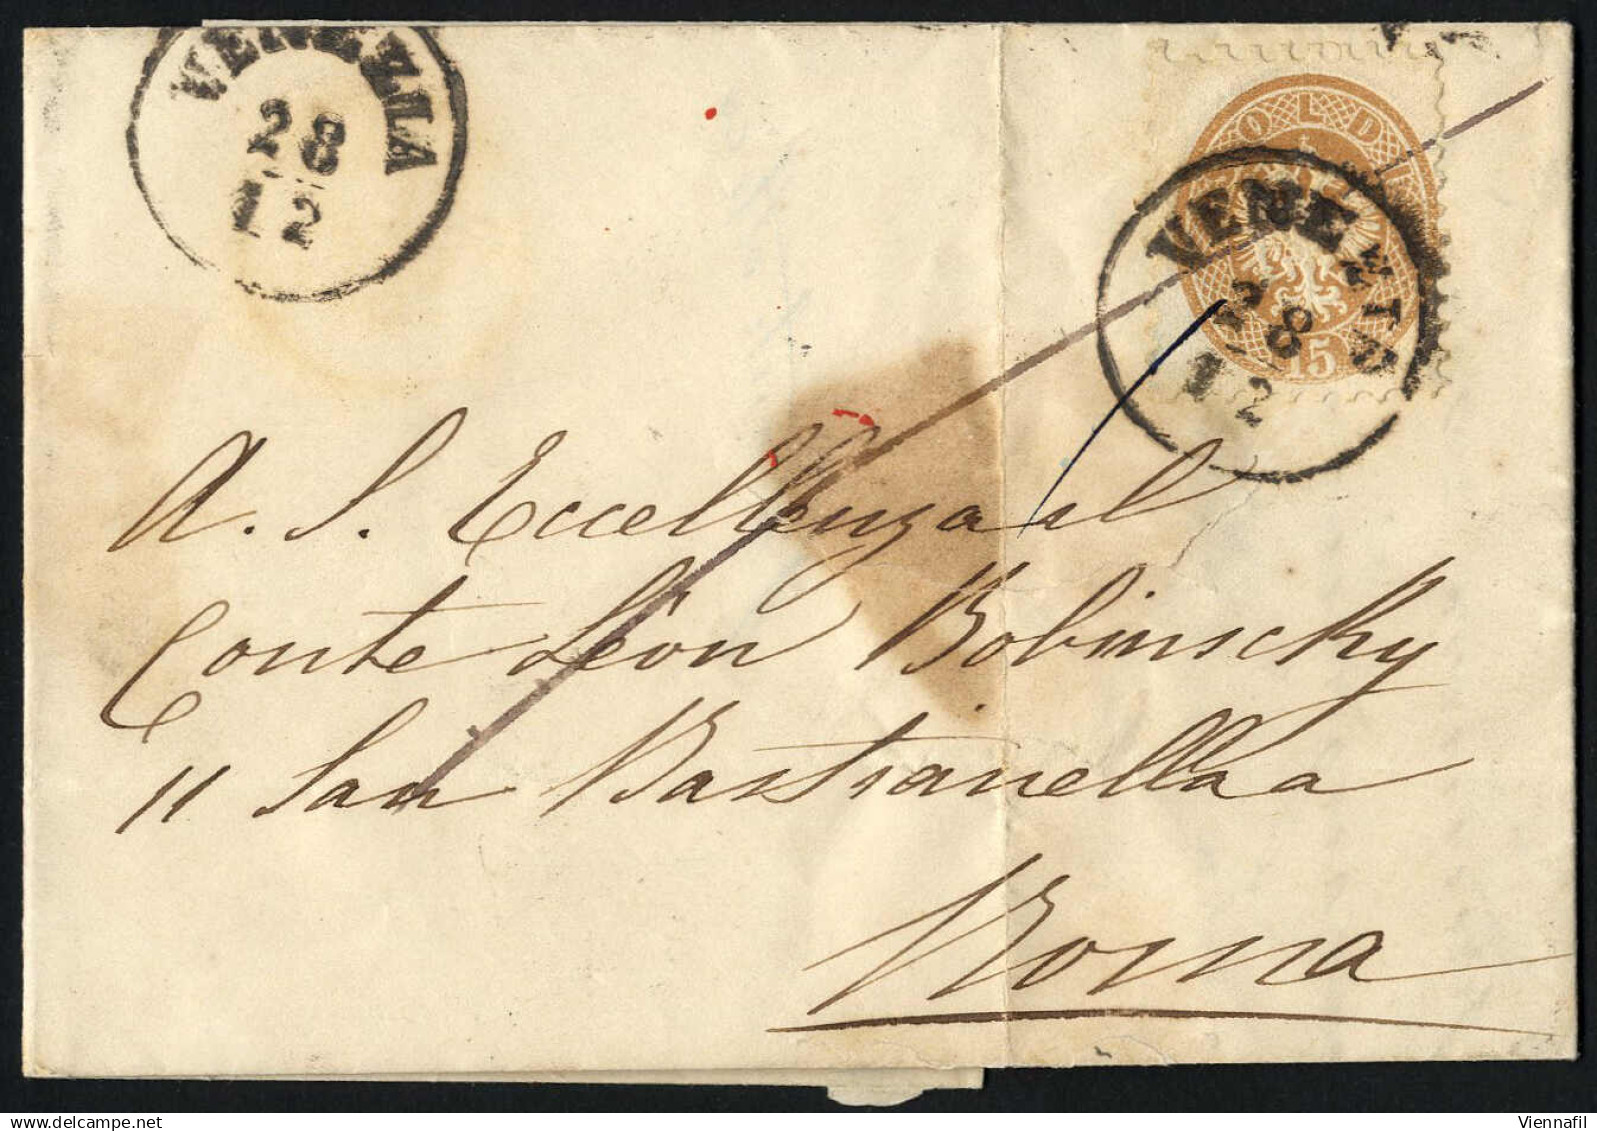 VENEZIA
28
12
SOLDI
15
VENEZIA
28
12
A. S. Eccellenza il
Conte Léon Bobinschy
11 San Bastianello a
Roma
Viennafil